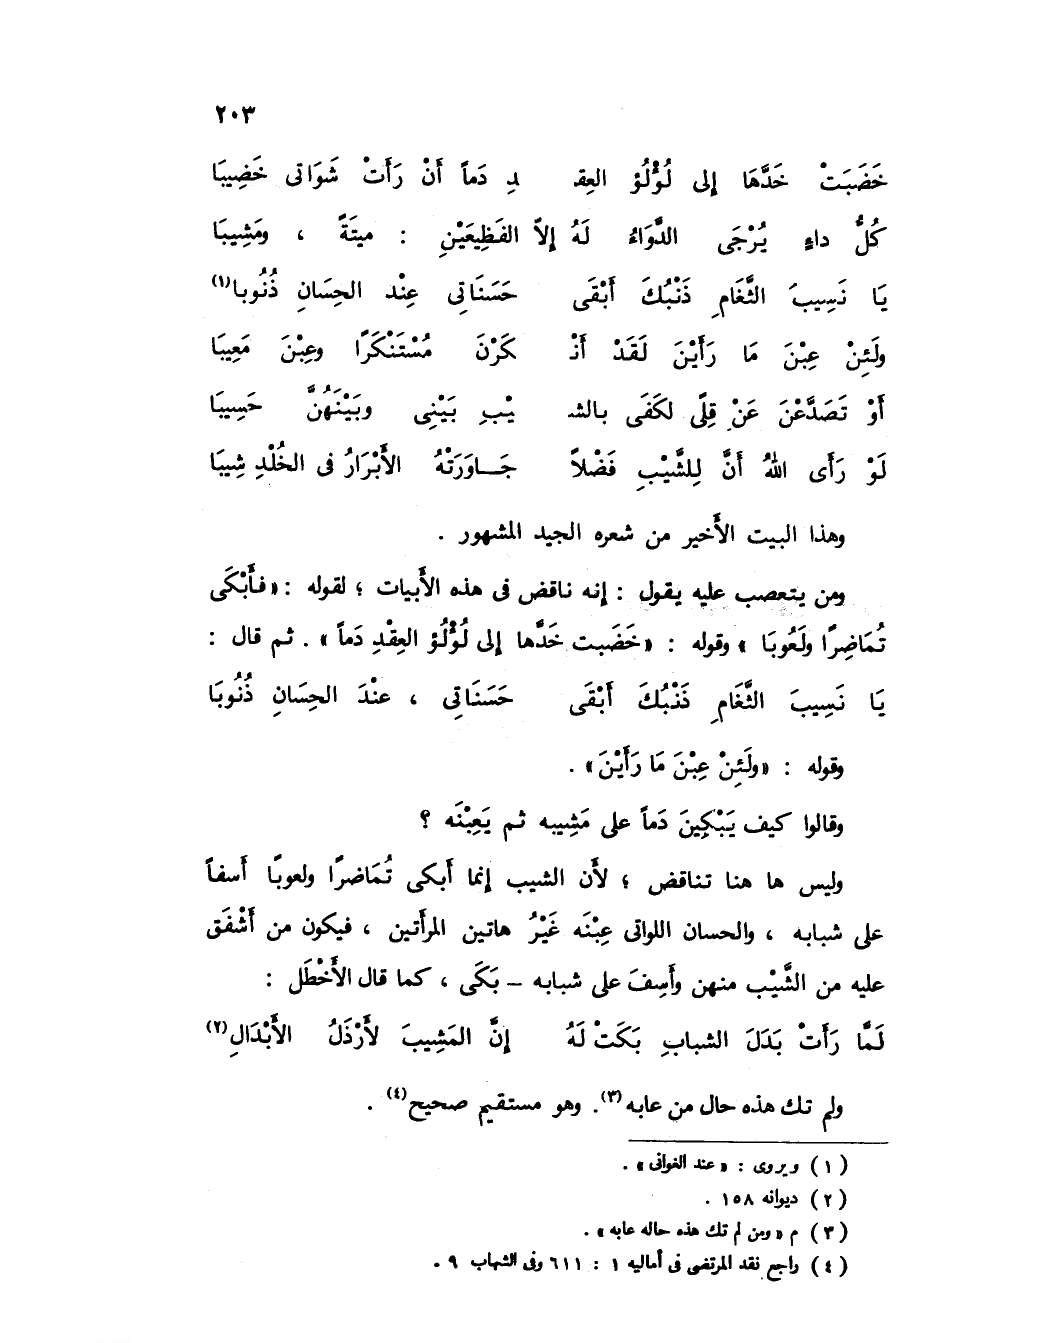 ٢٠٣
خَضَبَتْ خَدَّهَا إلى لُؤْلُؤِ العِقـ ـدِ دَماً أَنْ رَأَتْ شَوَاتى خَضِيبَا
كُلُّ داءٍ يُرْجَى الدَّوَاءُ لَهُ إلاّ الفَظِيعَيْنِ : ميتَةً ، ومَشِيبَا
يَا نَسِيبَ الثَّغَامِ ذَنْبُكَ أَبْقَى حَسَنَاتِى عِنْد الحِسَانِ ذُنُوبا(١)
ولَئِنْ عِبْنَ مَا رَأَيْنَ لَقَدْ أَنْـ كَرْنَ مُسْتَنْكَرًا وعِبْنَ مَعِيبَا
أَوْ تَصَدَّعْنَ عَنْ قِلًى لكَفَى بالشـ ـيْبِ بَيْنِى وبَيْنَهُنَّ حَسِيبَا
لَوْ رَأَى اللهُ أَنَّ لِلشَّيْبِ فَضْلاً جَـاوَرَتْهُ الأَبْرَارُ فى الخُلْدِ شِيبَا
وهذا البيت الأَخير من شعره الجيد المشهور .
ومن يتعصب عليه يقول : إنه ناقض فى هذه الأَبيات ؛ لقوله : «فأَبْكَى
تُمَاضِرًا ولَعُوبَا » وقوله : «خَضَبت خَدَّها إلى لُؤْلُؤِ العِقْدِ دَماً » . ثم قال :
يَا نَسِيبَ الثَّغَامِ ذَنْبُكَ أَبْقَى حَسَنَاتِى ، عنْدَ الحِسَانِ ذُنُوبَا
وقوله : «ولَئِنْ عِبْنَ مَا رَأَيْنَ» .
وقالوا كيف يَبْكِينَ دَماً على مَشِيبه ثم يَعِبْنَه ؟
وليس ها هنا تناقض ؛ لأَن الشيب إنما أَبكى تُمَاضرًا ولعوبًا أَسفاً
على شبابه ، والحسان اللواتى عِبْنَه غَيْرُ هاتين المرأَتين ، فيكون من أَشْفَق
عليه من الشَّيْب منهن وأَسِفَ على شبابه – بَكَى ، كما قال الأَخْطَل :
لَمَّا رَأَتْ بَدَلَ الشبابِ بَكَتْ لَهُ إنَّ المَشِيبَ لأَرْذَلُ الأَبْدَالِ(٢)
ولم تك هذه حال من عابه(٣). وهو مستقيم صحيح(٤) .
(١) ويروى : «عند الغوانى» .
(٢) ديوانه ١٥٨ .
(٣) م «ومن لم تك هذه حاله عابه» .
(٤) راجع نقد المرتضى فى أماليه ١ : ٦١١ وفى الشهاب ٩ .